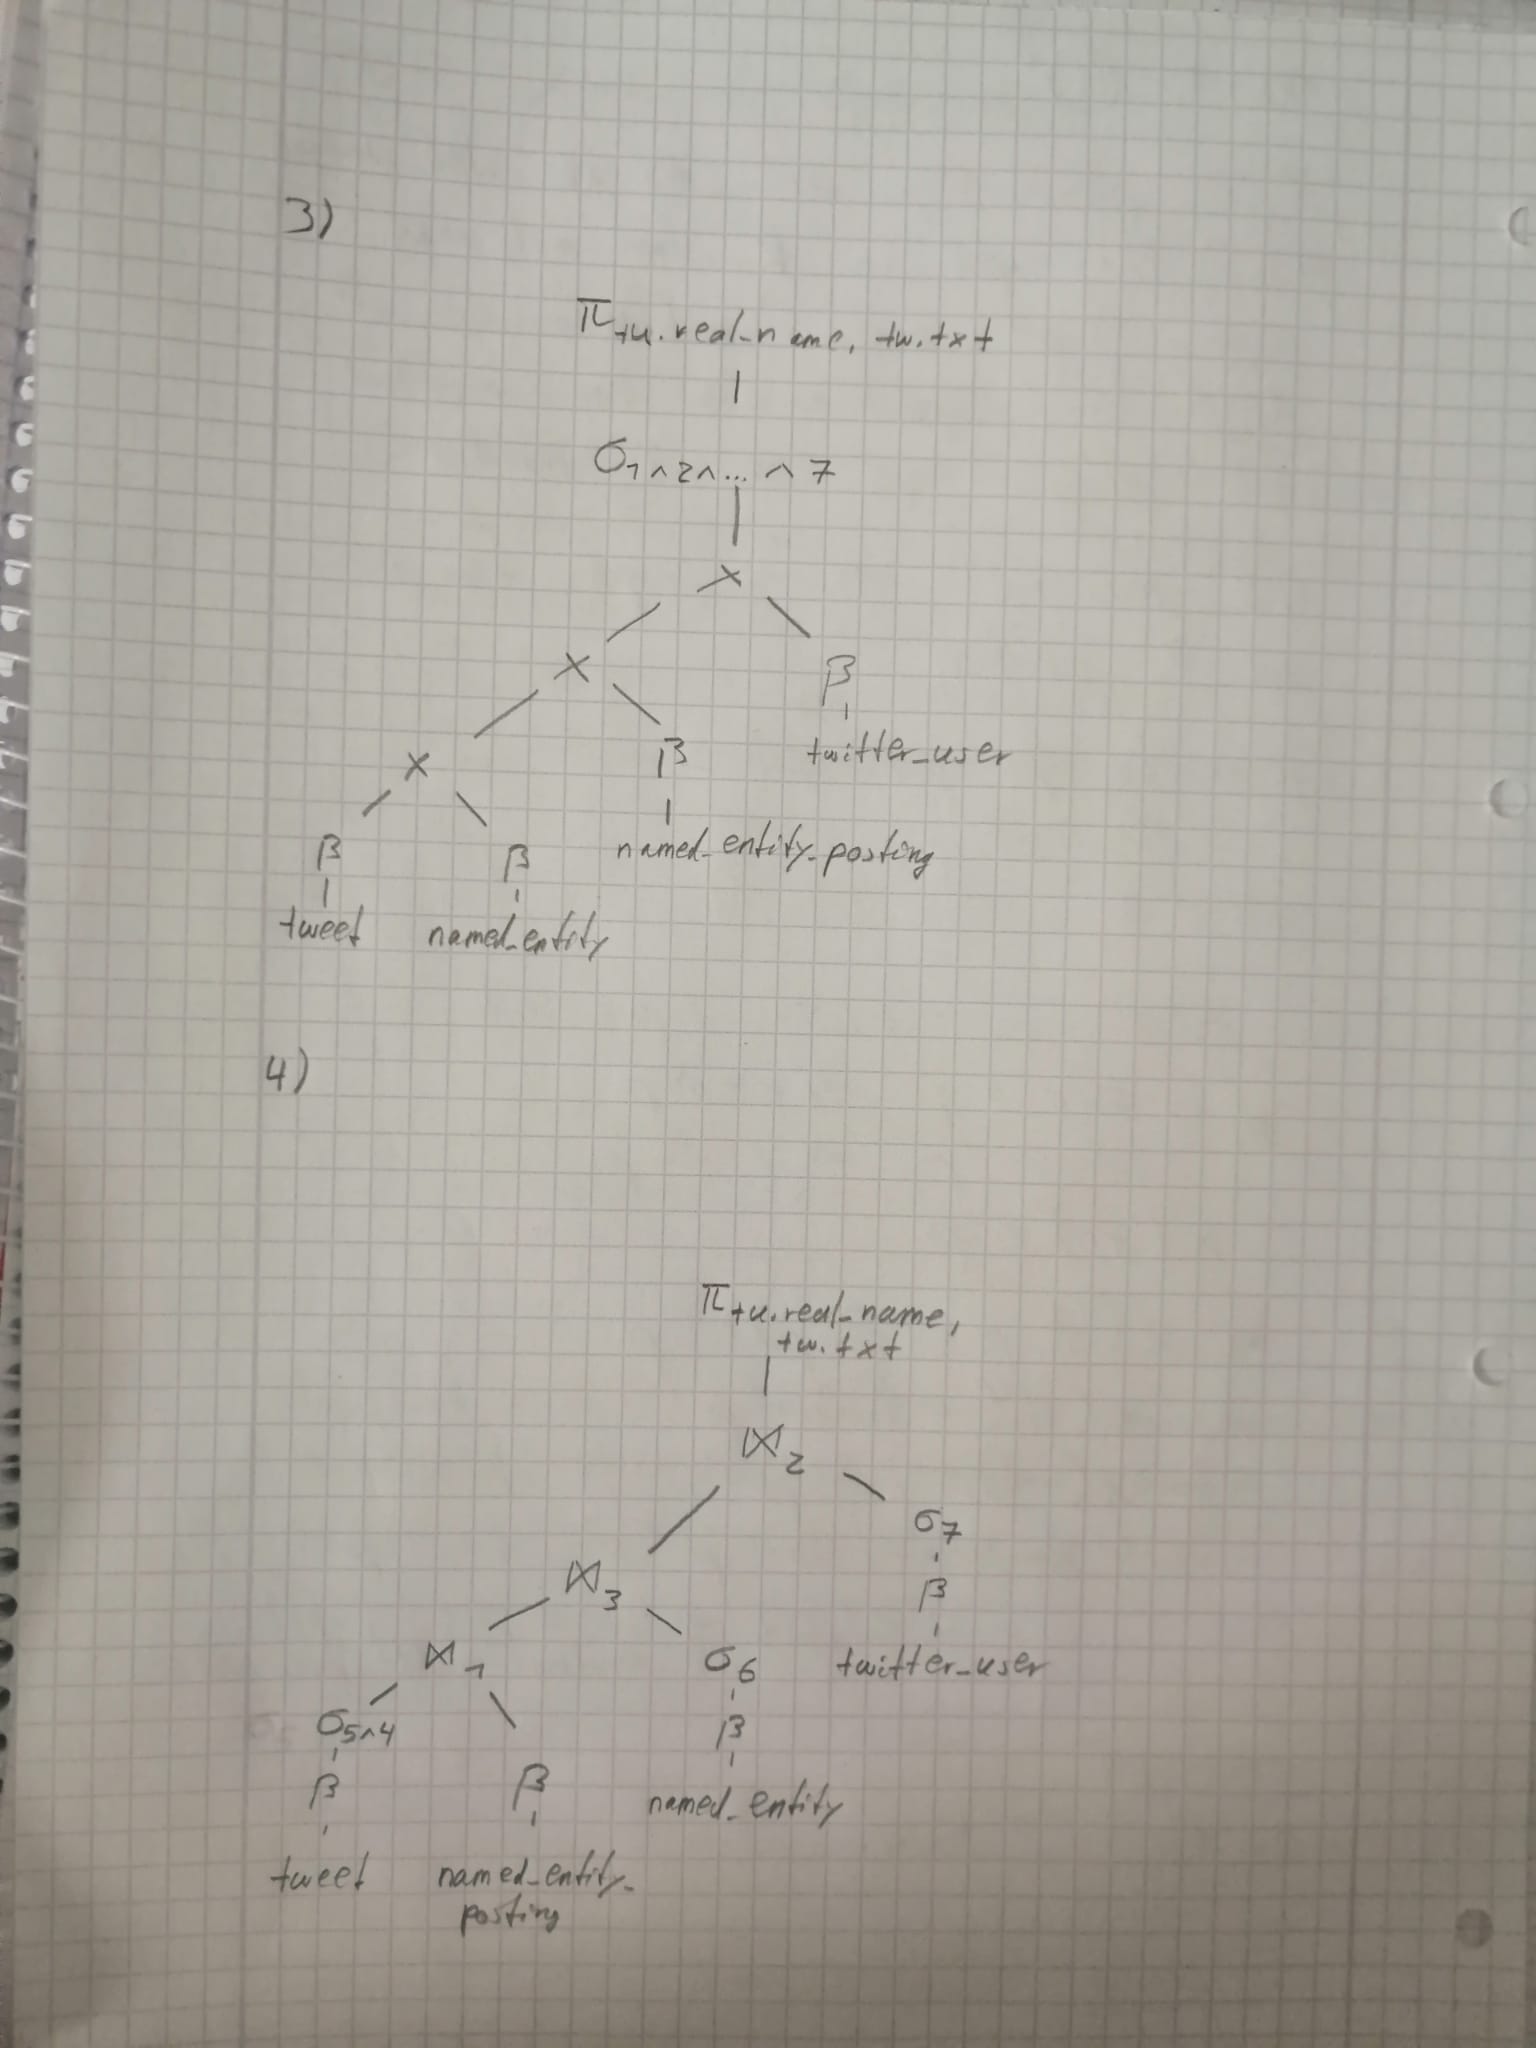 3)
π tu.real_name, tw.txt
σ 1∧2∧...∧7
×
×
β
twitter_user
×
β
named_entity_posting
β β
tweet named_entity
4)
π tu.real_name,
tw.txt
⋈ 2
σ 7
β
⋈ 3
⋈ 1 σ 6 twitter_user
σ 5∧4 β
β β named_entity
tweet named_entity_
posting